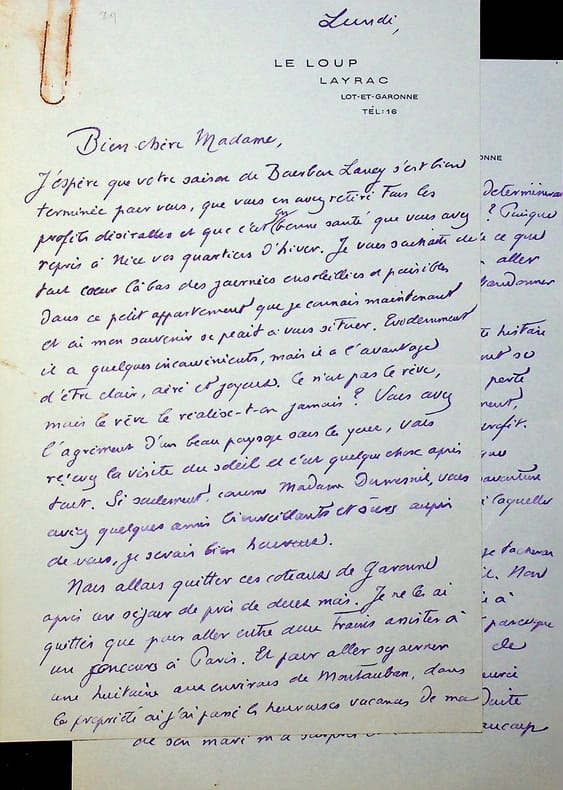 29
Lundi,
LE LOUP
LAYRAC
LOT-ET-GARONNE
TÉL: 16
Bien chère Madame,
J'espère que votre saison de Bourbon Lancy s'est bien
terminée pour vous, que vous en avez retiré tous les
profits désirables et que c'est en bonne santé que vous avez
repris à Nice vos quartiers d'hiver. Je vous souhaite de
tout cœur là-bas des journées ensoleillées et paisibles
dans ce petit appartement que je connais maintenant
et où mon souvenir se plait à vous situer. Evidemment
il a quelques inconvénients, mais il a l'avantage
d'être clair, aéré et joyeux. Ce n'est pas le rêve,
mais le rêve le réalise-t-on jamais ? Vous avez
l'agrément d'un beau paysage sous les yeux, vous
recevez la visite du soleil et c'est quelque chose après
tout. Si seulement, comme Madame Dumesnil, vous
aviez quelques amis bienveillants et sûrs auprès
de vous, je serais bien heureux.
Nous allons quitter ces coteaux de Garonne
après un séjour de près de deux mois. Je ne les ai
quittés que pour aller entre deux trains assister à
un concours à Paris. Et pour aller séjourner
une huitaine aux environs de Montauban, dans
la propriété où j'ai passé les heureuses vacances de ma
de son mari m'a
ONNE
? Puisque
ce que
aller
perte
de